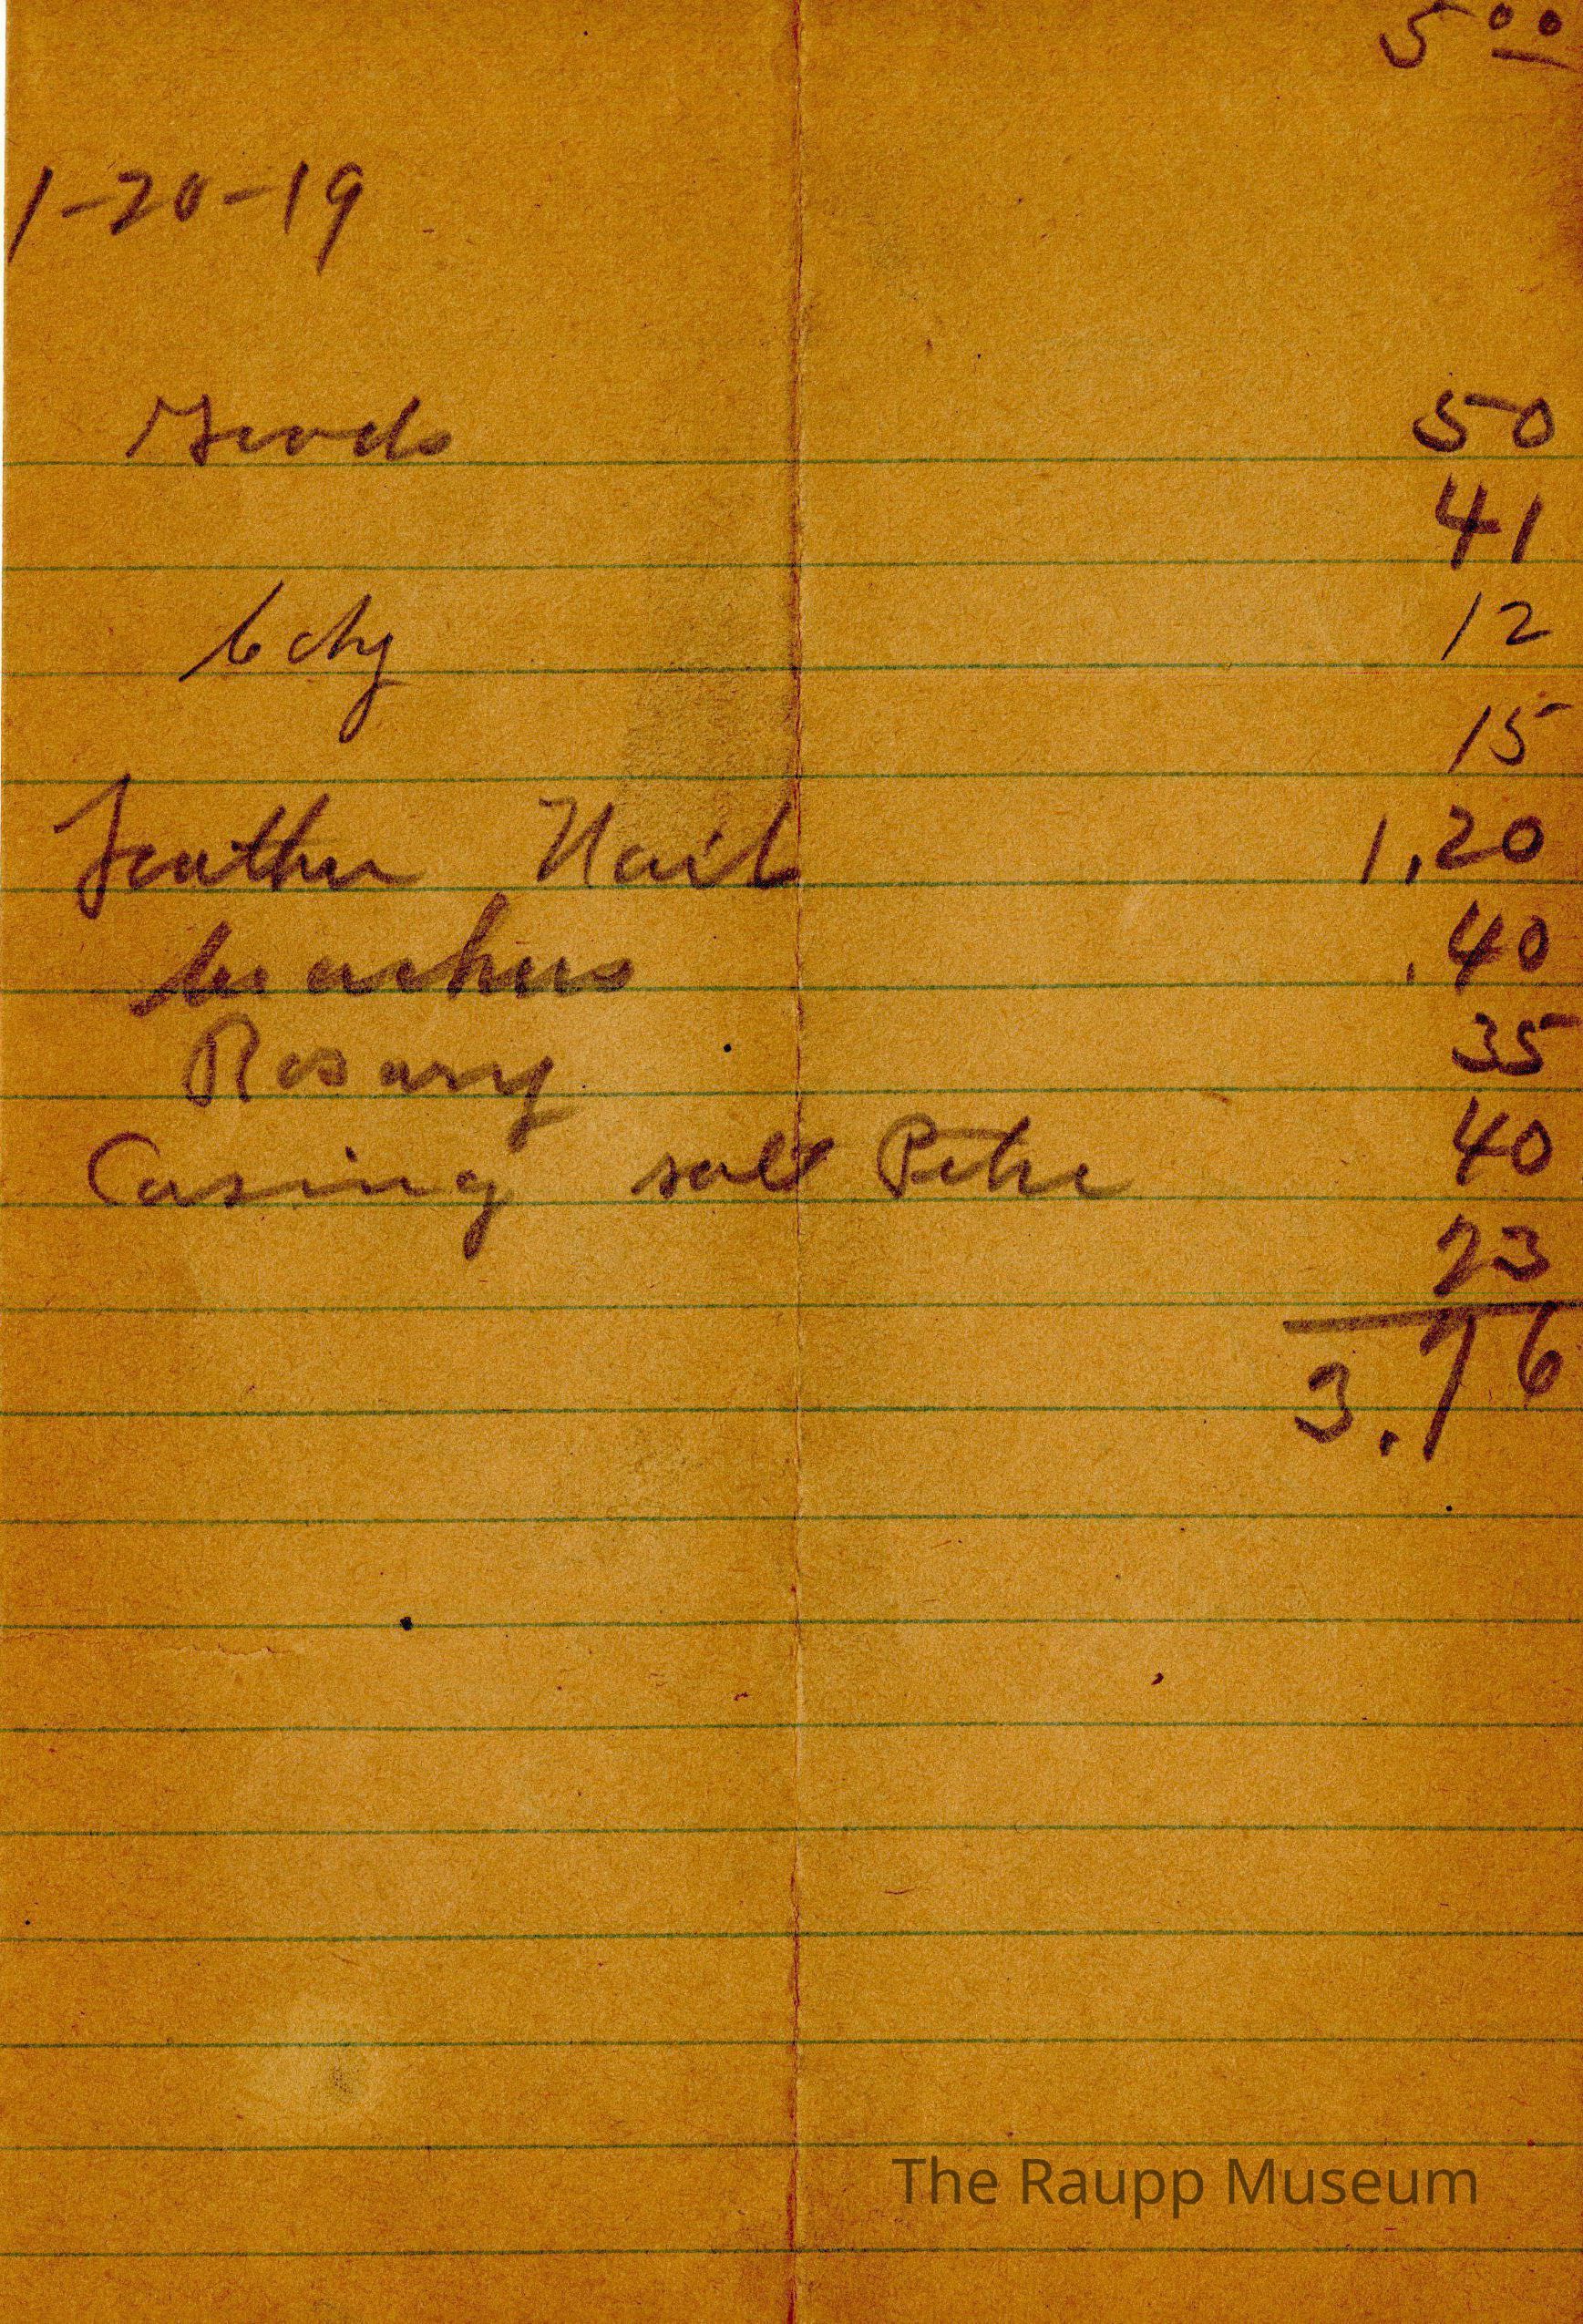 5 00
1-20-19
Goods 50
41
12
15
Nails 1,20
.40
Rosary 35
Casing salt Petre 40
23
3.76
The Raupp Museum